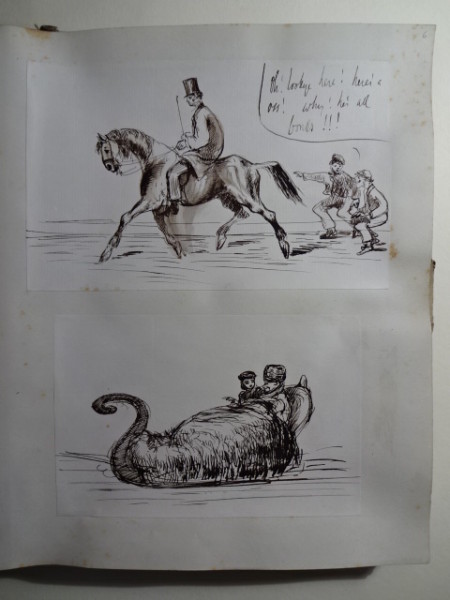 Oh! lookye here! here's a
oss! why! he's all
bones!!!